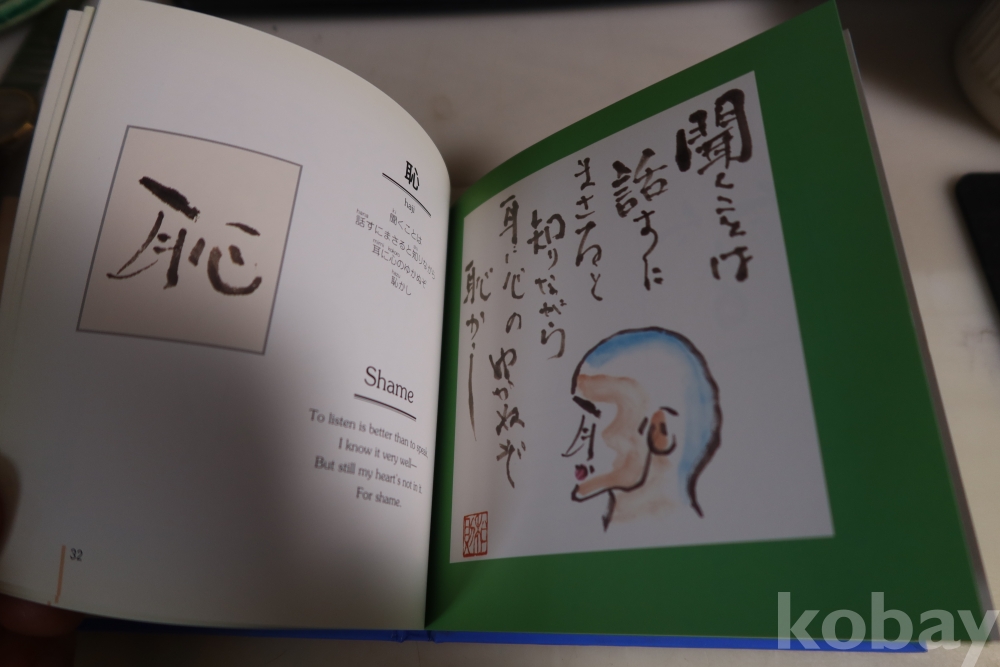 恥
恥
haji
聞くことは
話すにまさると知りながら
耳に心のゆかぬぞ
恥かし
Shame
To listen is better than to speak,
I know it very well—
But still my heart's not in it.
For shame.
32
聞くことは
話すに
まさると
知りながら
耳に心のゆかぬぞ
恥かし
kobay